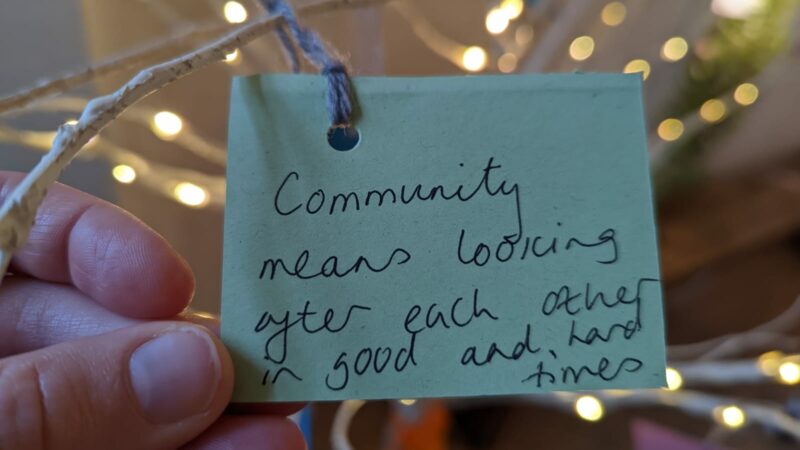 Community
means looking
after each other
in good and hard
times